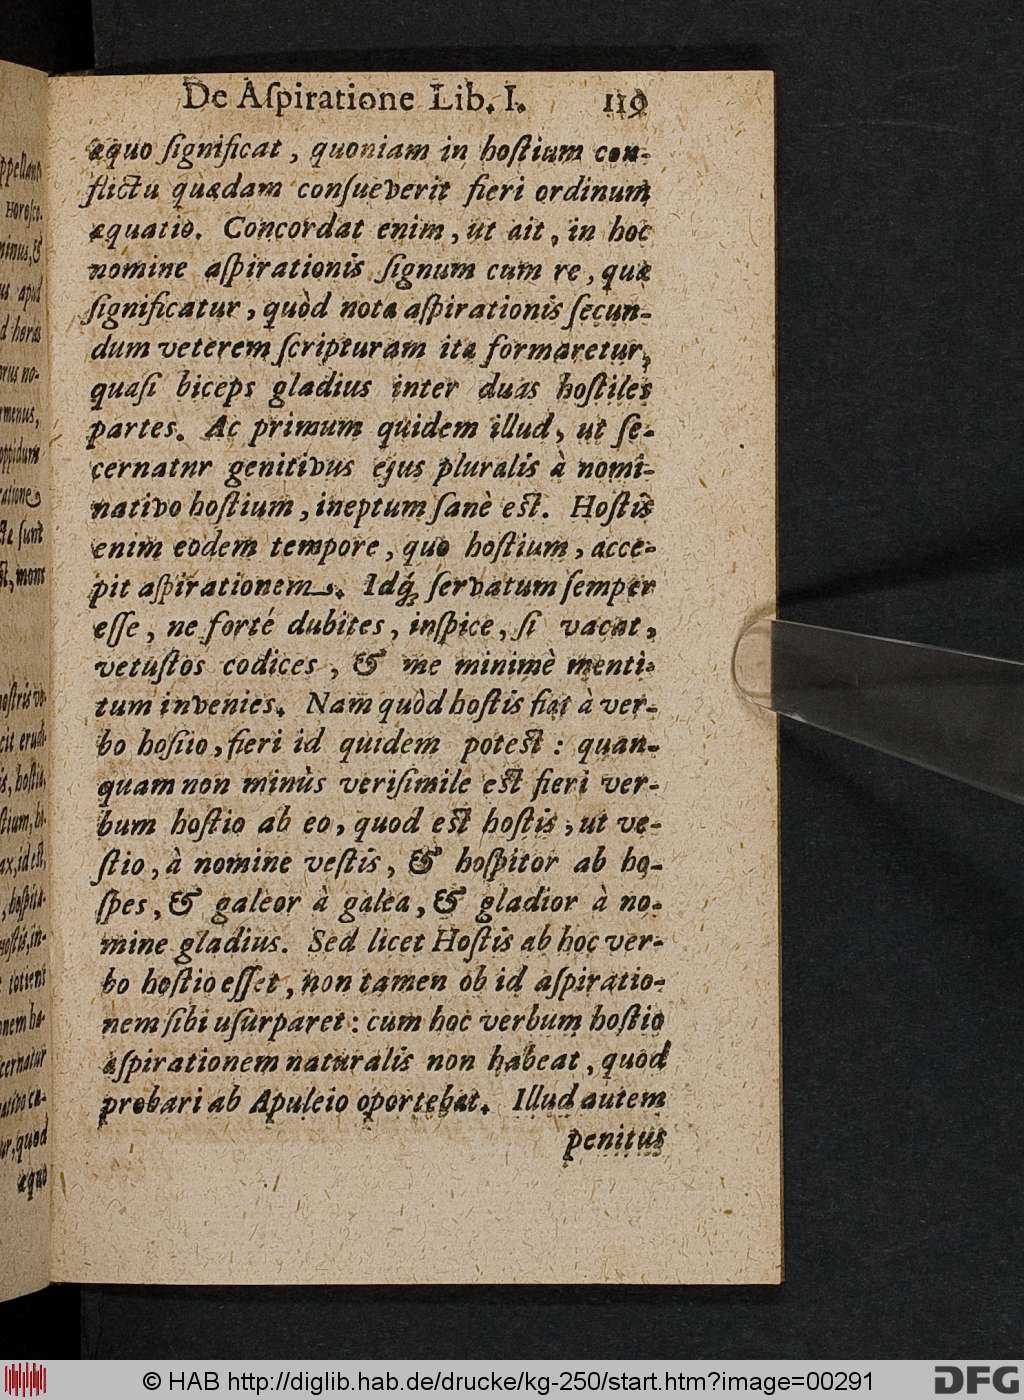 De Aſpiratione Lib. I. 119
æquo ſignificat, quoniam in hoſtium con-
flictu quædam conſueverit fieri ordinum
æquatio. Concordat enim, ut ait, in hoc
nomine aſpirationis ſignum cum re, quæ
ſignificatur, quòd nota aſpirationis ſecun-
dum veterem ſcripturam ita formaretur,
quaſi biceps gladius inter duas hoſtiles
partes. Ac primum quidem illud, ut ſe-
cernatur genitivus ejus pluralis à nomi-
nativo hoſtium, ineptum ſanè eſt. Hoſtis
enim eodem tempore, quo hoſtium, acce-
pit aſpirationem. Idq́; ſervatum ſemper
eſſe, ne forté dubites, inſpice, ſi vacat,
vetuſtos codices, & me minimè menti-
tum invenies. Nam quòd hoſtis fiat à ver-
bo hoſtio, fieri id quidem poteſt : quan-
quam non minùs veriſimile eſt fieri ver-
bum hoſtio ab eo, quod eſt hoſtis, ut ve-
ſtio, à nomine veſtis, & hoſpitor ab ho-
ſpes, & galeor à galea, & gladior à no-
mine gladius. Sed licet Hoſtis ab hoc ver-
bo hoſtio eſſet, non tamen ob id aſpiratio-
nem ſibi uſurparet : cum hoc verbum hoſtio
aſpirationem naturalis non habeat, quod
probari ab Apuleio oportebat. Illud autem
penitus
© HAB http://diglib.hab.de/drucke/kg-250/start.htm?image=00291
DFG